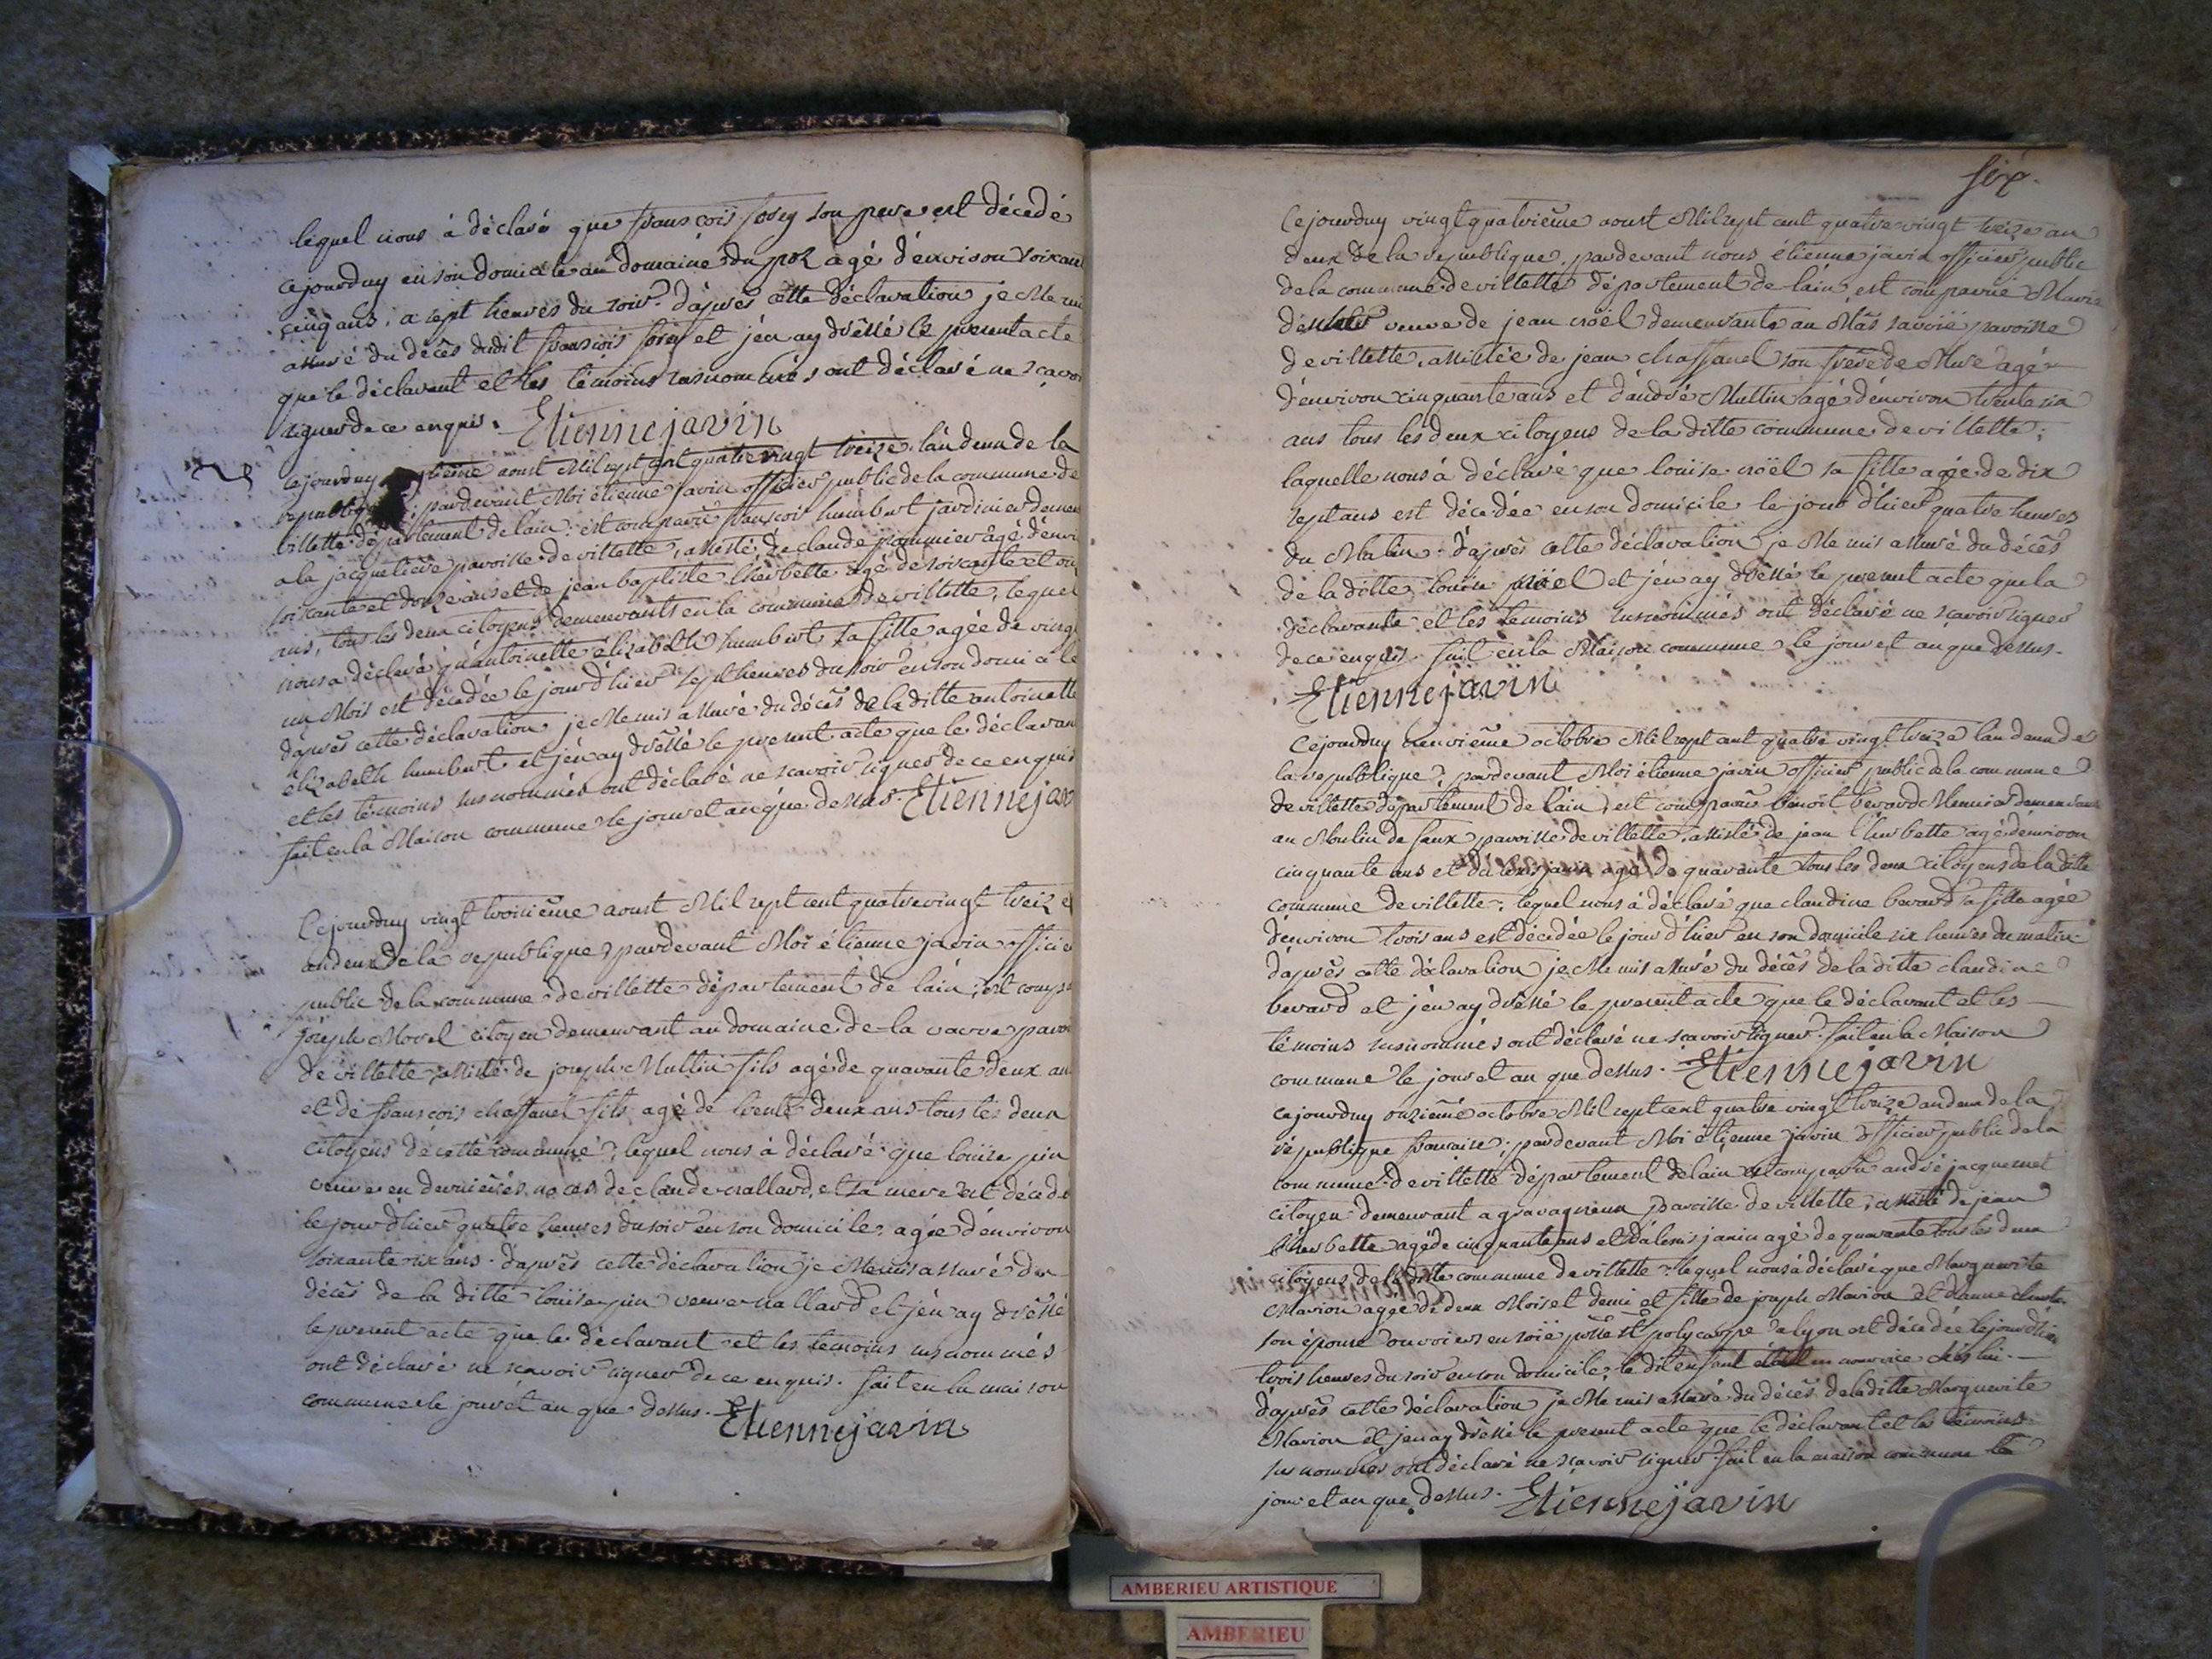 lequel nous à déclaré que françois sorey son pere est décedé
cejourduy en son domicile au domaine du pol agé d'environ soixan
cinq ans, a sept heures du soir. d'aprés cette déclaration je Me suis
assuré du décès dudit françois sorey et j'en ay dressé le present acte
que le déclarant et les témoins susnommés ont déclaré ne sçavoir
signer de ce enquis. Etienne javin
cejourduy aoust Mil sept cent quatre vingt treize l'an deux de la
republique, pardevant Moi étienne javin officier public de la commune de
villette département de l'ain: est comparu françois humbert jardinier demeu
a la jacquetiere paroisse de villette, assisté de claude pommier agé d'envi
soixante et douze ans et de jean baptiste lherbette agé de soixante et on
ans, tous les deux citoyens demeurants en la commune de villette, lequel
nous a déclaré qu'antoinette élizabeth humbert sa fille agée de vingt
un Mois est décedée le jour d'hier sept heures du soir en son domicile
d'aprés cette déclaration je Me suis assuré du décès de la ditte antoinette
élizabeth humbert et j'en ay dressé le present acte que le déclarant
et les témoins susnommés ont déclaré ne sçavoir signer de ce enquis
fait en la Maison commune le jour et an que dessus. Etienne jav
Cejourduy vingt troisiéme aoust Mil sept cent quatre vingt treize
an deux de la republique, pardevant Moi étienne javin officier
public de la commune de villette département de l'ain; est compa
joseph Morel citoyen demeurant au domaine de la varre paroi
de villette assisté de joseph Multin fils agé de quarante deux an
et de françois chassanel fils agé de trente deux ans tous les deux
citoyens de cette commune, lequel nous à déclaré que louise pin
veuve en derniéres noces de claude nallard, et sa mere est décedé
le jour d'hier quatre heures du soir en son domicile, agée d'environ
soixante six ans. d'aprés cette déclaration je Me suis assuré du
décès de la ditte louise pin veuve nallard et j'en ay dressé
le present acte que le déclarant et les temoins susnommés
ont déclaré ne scavoir signer de ce enquis. fait en la maison
commune le jour et an que dessus. Etienne javin
six.
Cejourduy vingt quatriéme aoust Mil sept cent quatre vingt treize an
deux de la republique, pardevant nous étienne javin officier public
de la commune de villette département de l'ain, est comparue Marie
veuve de jean noël demeurante au Mas savoie paroisse
de villette, assistée de jean chassanel son frere de Mere agé
d'environ cinquante ans et d'andré Multin agé d'environ trente six
ans tous les deux citoyens de la ditte commune de villette;
laquelle nous à déclaré que louïse noël sa fille agée de dix
sept ans est décedée en son domicile le jour d'hier quatre heures
du Matin. d'aprés cette déclaration je Me suis assuré du décès
de la ditte louise noël et j'en ay dressé le present acte que la
déclarante et les temoins susnommés ont déclaré ne scavoir signer
de ce enquis. fait en la Maison commune le jour et an que dessus.
Etienne javin
Cejourduy neuviéme octobre Mil sept cent quatre vingt treize l'an deux de
la republique, pardevant Moi étienne javin officier public de la commune
de villette département de l'ain, est comparu benoît berard Meunier demeurant
au Moulin de faux paroisse de villette, assisté de jean lherbette agé d'environ
cinquante ans et d'alexis janin agé de quarante tous les deux citoyens de la ditte
commune de villette; lequel nous à déclaré que claudine berard sa fille agée
d'environ trois ans est décedée le jour d'hier en son domicile six heures du matin
d'aprés cette déclaration je Me suis assuré du décès de la ditte claudine
berard et j'en ay dressé le present acte que le déclarant et les
témoins susnommés ont déclaré ne scavoir signer. fait en la Maison
commune le jour et an que dessus. Etienne javin
cejourduy onziéme octobre Mil sept cent quatre vingt treize an deux de la
république francaise; pardevant Moi étienne javin officier public de la
commune de villette département de l'ain est comparu andré jacquemet
citoyen demeurant a gravagneux paroisse de villette, assisté de jean
lherbette agé de cinquante ans et d'alexis janin agé de quarante tous les deux
citoyens de la ditte commune de villette: lequel nous à déclaré que Marguerite
Marion agée de deux Mois et demi et fille de joseph Marion et d'anne
son épouse ouvoiers en soïe polycarpe a lyon est décedée le jour d'hier
trois heures du soir en son domicile, le dit enfant étoit en nourrice chés lui.
d'aprés cette déclaration je Me suis assuré du décès de la ditte Marguerite
Marion et j'en ay dressé le present acte que le déclarant et les témoins
sus nommés ont déclaré ne scavoir signer. fait en la maison commune le
jour et an que dessus. Etienne javin
AMBERIEU ARTISTIQUE
AMBERIEU